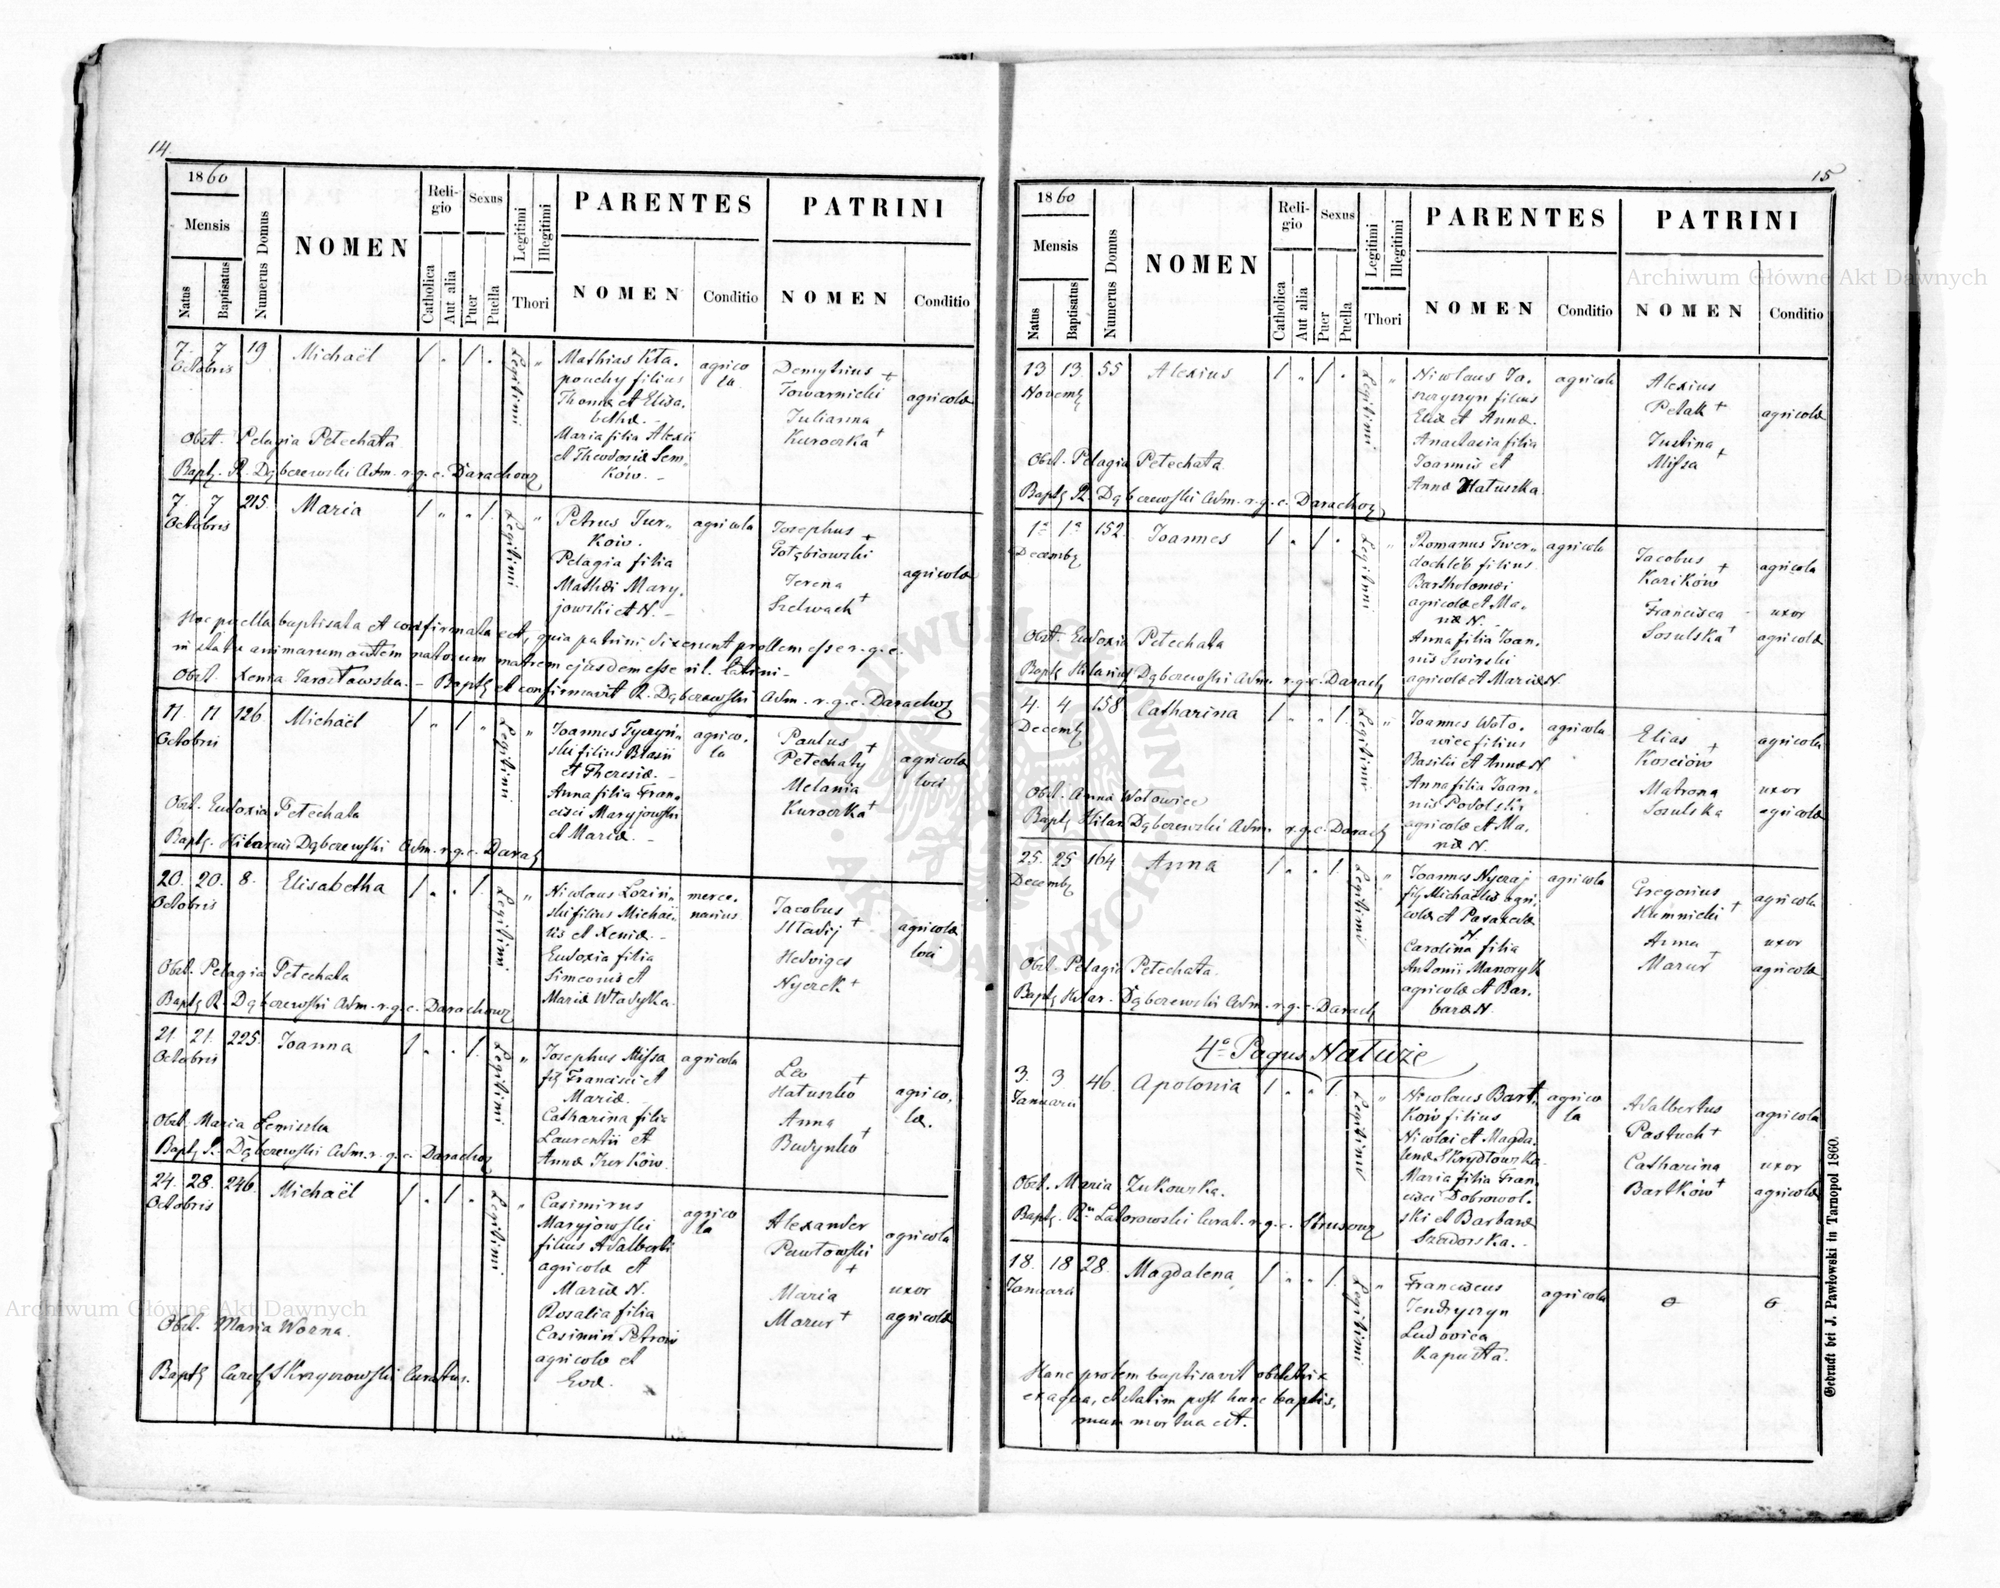 14.
1860
Mensis
Natus
Baptisatus
Numerus Domus
NOMEN
Religio
Catholica
Aut alia
Sexus
Puer
Puella
Legitimi
Illegitimi
Thori
PARENTES
NOMEN
Conditio
PATRINI
NOMEN
Conditio
7. 7 19 Michaël 1 „ 1 „ Legitimi „
Octobris
Mathias Kta-
pouchy filius
Thomæ et Elisa-
bethæ. –
Maria filia Alexii
et Theodosiæ Sem-
ków. –
agrico
la
Demytrius +
Towarnicki
Julianna
Kuroczka +
agricolæ
Obst. Pelagia Petechata
Bapt. R. Dąbczewski Adm. r. g. c. Darachow
7 7 215. Maria 1 „ „ 1. Legitimi „
Octobris
Petrus Jur-
ków.
Pelagia filia
Mathæi Mary-
jowski et N. –
agricola
Josephus +
Gołębiowski
Irena
Szelwach +
agricolæ
Hæc puella baptisata et confirmata est, quia patrini dixerunt prollem esse r. g. c.
in statu animarum autem natorum matrem ejusdem esse rit. latini –
Obst. Xenia Jarosławska. – Bapt et confirmavit R. Dąbczewski Adm. r. g. c. Darachow
11. 11 126. Michaël 1 „ 1 „ Legitimi „
Octobris
Joannes Tyczyń-
ski filius Blasii
et Theresiæ. –
Anna filia Fran-
cisci Maryjowski
et Mariæ. –
agrico-
la
Paulus +
Petechaty
Melania
Kuroczka +
agricolæ
loci
Obst. Eudoxia Petechata
Bapt. Hilarius Dąbczewski Adm. r. g. c. Darach
20. 20. 8. Elisabetha 1 „ „ 1. Legitimi „
Octobris
Nicolaus Loziń-
ski filius Michaë-
lis et Xeniæ. –
Eudoxia filia
Simeonis et
Mariæ Władyka.
merce-
narius
Jacobus
Hladij +
Hedviges
Nyczek +
agricolæ
loci
Obst. Pelagia Petechata
Bapt R. Dąbczewski Adm. r. g. c. Darachow
21. 21. 225. Joanna 1 „ „ 1. Legitimi „
Octobris
Josephus Missa
fil Francisci et
Mariæ.
Catharina filia
Laurentii et
Annæ Jurków.
agricola
Leo +
Hatuszko
Anna +
Budynko
agrico-
læ.
Obst. Maria Lemiszka
Bapt R. Dąbczewski Adm. r. g. c. Darachow
24. 28. 246. Michaël 1 „ 1 „ Legitimi „
Octobris
Casimirus
Maryjowski
filius Adalberti
agricolæ et
Mariæ N.
Rosalia filia
Casimiri Petrow
agricolæ et
Evæ.
agrico
la
Alexander
Pawłowski
+
Maria
Mazur +
agricola
uxor
agricolæ
Obst. Maria Worna.
Bapt Skrzynowski Curatus.
15
1860
Mensis
Natus
Baptisatus
Numerus Domus
NOMEN
Religio
Catholica
Aut alia
Sexus
Puer
Puella
Legitimi
Illegitimi
Thori
PARENTES
NOMEN
Conditio
PATRINI
NOMEN
Conditio
13 13 55 Alexius 1 „ 1 „ Legitimi „
Novemb
Nicolaus Ja-
szczyszyn filius
Eliæ et Annæ.
Anastasia filia
Joannis et
Annæ Hatuszka
agricola
Alexius
Petak +
Justina +
Missa
agricolæ
Obst. Pelagia Petechata
Bapt R. Dąbczewski Adm. r. g. c. Darachow
1ª 1ª 152. Joannes 1 „ 1 „ Legitimi „
Decemb
Romanus Twer-
dochleb filius
Bartholomæi
agricolæ et Ma-
riæ N.
Anna filia Joan-
nis Swirski
agricolæ et Mariæ N
agricola
Jacobus +
Karików
Francisca
Sosulska +
agricola
uxor
agricolæ
Obst. Eudoxia Petechata
Bapt Hilarius Dąbczewski Adm. r. g. c. Darach
4. 4 158 Catharina 1 „ „ 1. Legitimi „
Decemb
Joannes Woto-
wiec filius
Basilii et Annæ N
Anna filia Joan-
nis Podolski
agricolæ et Ma-
riæ N.
agricola
Elias +
Kosciów
Matrona
Sosulska
agricola
uxor
agricolæ
Obst. Anna Wotowiec
Bapt Hilar Dąbczewski Adm. r. g. c. Darach
25. 25 164 Anna 1 „ „ 1. Legitimi „
Decemb
Joannes Nyczaj
fil Michaëlis agri-
colæ et Paraxedæ
N.
Carolina filia
Antonii Manoryk
agricolæ et Bar-
baræ N.
agricola
Gregorius
Humnicki +
Anna +
Mazur
agricola
uxor
agricolæ
Obst. Pelagia Petechata.
Bapt Hilar. Dąbczewski Adm. r. g. c. Darach
4º Pagus Naluże
3. 3 46. Apolonia 1 „ „ 1. Legitimi „
Januarii
Nicolaus Bart-
ków filius
Nicolai et Magda-
lenæ Skrydłowska
Maria filia Fran-
cisci Dobrowol-
ski et Barbaræ
Szadorska.
agrico
la
Adalbertus
Pastuch +
Catharina
Bartków +
agricola
uxor
agricolæ
Obst. Maria Zukowska.
Bapt. R. Laborowski Curat. r. g. c. Strusow
18. 18 28. Magdalena 1 „ „ 1. Legitimi „
Januarii
Franciscus
Jendrzyszyn
Ludovica
Kapusta.
agricola
Hanc prolem baptisavit obstetrix
ex aqua, et statim post hunc baptis-
mum mortua est.
Gedruckt bei J. Pawłowski in Tarnopol 1860.
Archiwum Główne Akt Dawnych
Archiwum Główne Akt Dawnych
ARCHIWUM GŁÓWNE AKT DAWNYCH